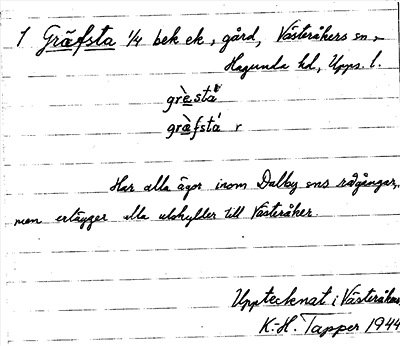 1 Gräfsta 1/4 bek ek, gård, Västeråkers sn,
Hagunda hd, Upps. l.
grὲsta
grὲfsta r
Har alla ägor inom Dalby sns rågångar,
men erlägger alla utskylder till Västeråker.
Upptecknat i Västeråker
K.-H. Tapper 1944